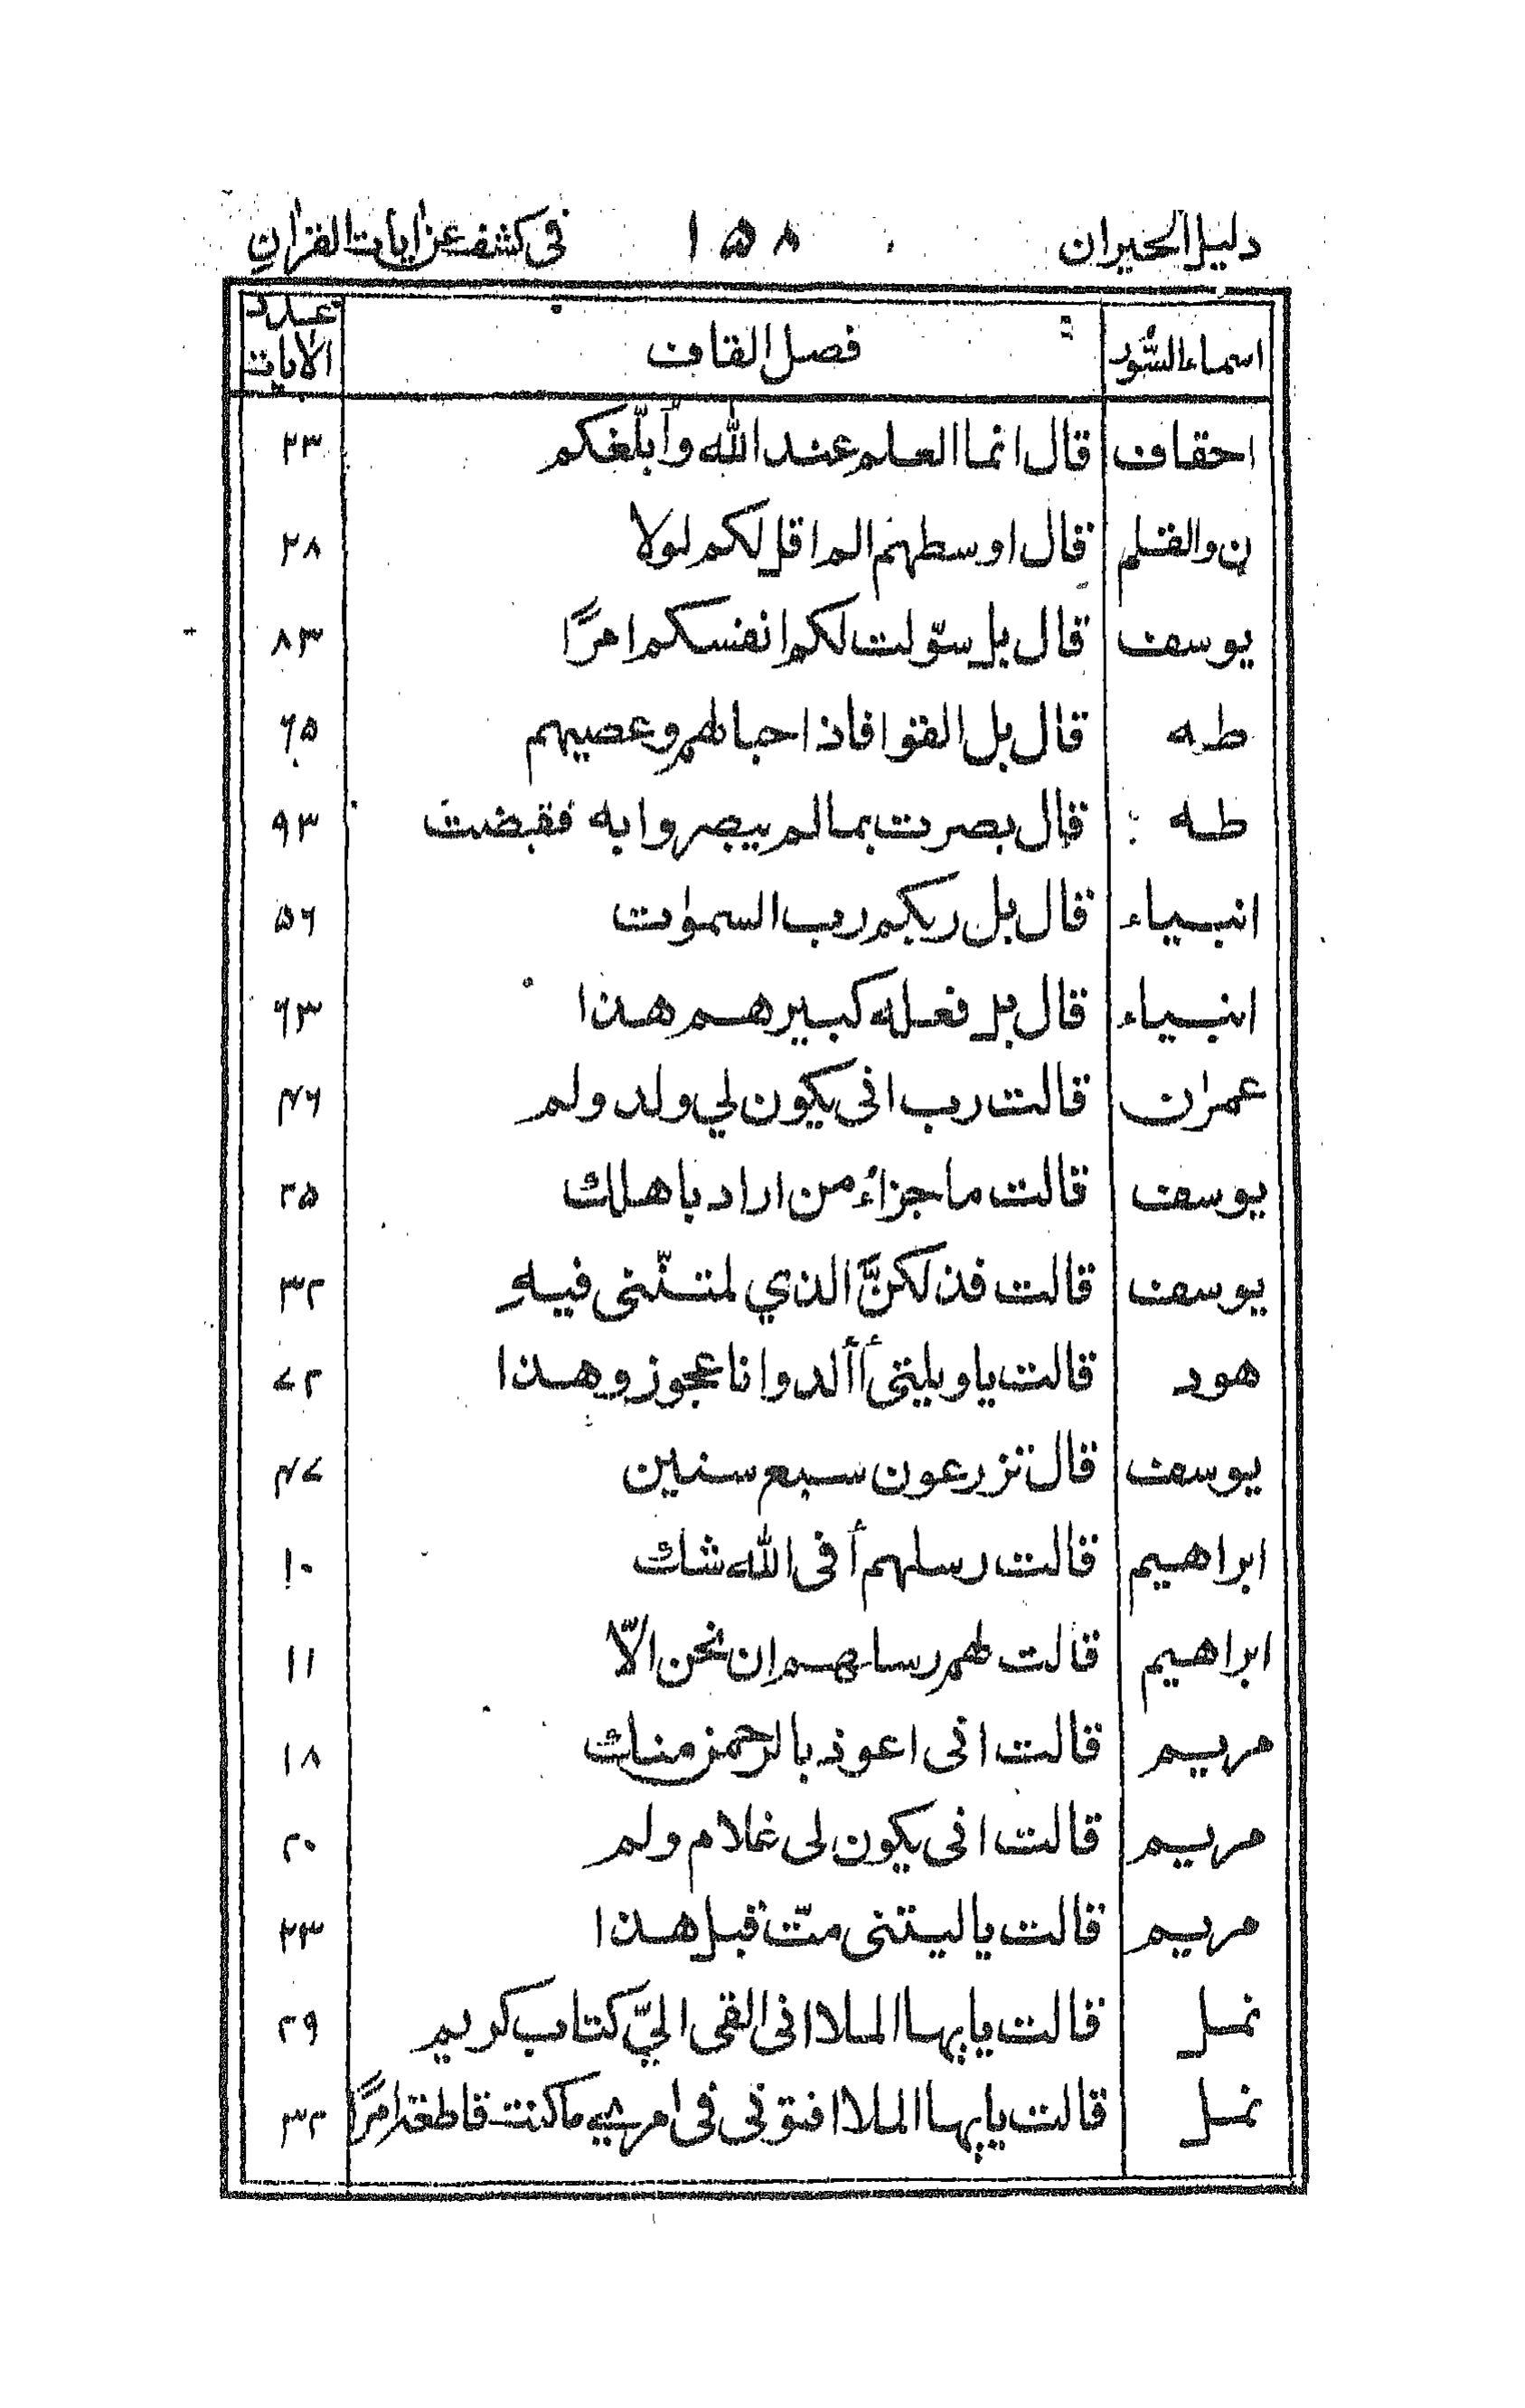 دليل الحيران ١٥٨ فى كشف عن ايات القران
اسماء السُّور فصل القاف عدد الايات
احقاف قال انما العلم عند الله وأبلّغكم ٢٣
ن والقلم قال اوسطهم الم اقل لكم لولا ٢٨
يوسف قال بل سوّلت لكم انفسكم امرًا ٨٣
طه قال بل القوا فاذا حبالهم وعصيهم ٦٥
طه قال بصرت بما لم يبصروا به فقبضت ٩٣
انبياء قال بل ربكم رب السموات ٥٦
انبياء قال بل فعله كبيرهم هذا ٦٣
عمران قالت رب انى يكون لي ولد ولم ٤٦
يوسف قالت ما جزاءُ من اراد باهلك ٢٥
يوسف قالت فذلكنَّ الذي لمتنّنى فيهِ ٣٢
هود قالت يا ويلتى أألد وانا عجوز وهذا ٧٢
يوسف قال تزرعون سبع سنين ٤٧
ابراهيم قالت رسلهم أفى الله شك ١٠
ابراهيم قالت لهم رسلهم ان نحن الّا ١١
مريم قالت انى اعوذ بالرحمن منك ١٨
مريم قالت انى يكون لى غلام ولم ٢٠
مريم قالت يا ليتنى متّ قبل هذا ٢٣
نمل قالت يا يها الملاا انى القى اليّ كتاب كريم ٢٩
نمل قالت يا يها الملاا افتونى فى امرى ما كنت قاطعة امرًا ٣٢